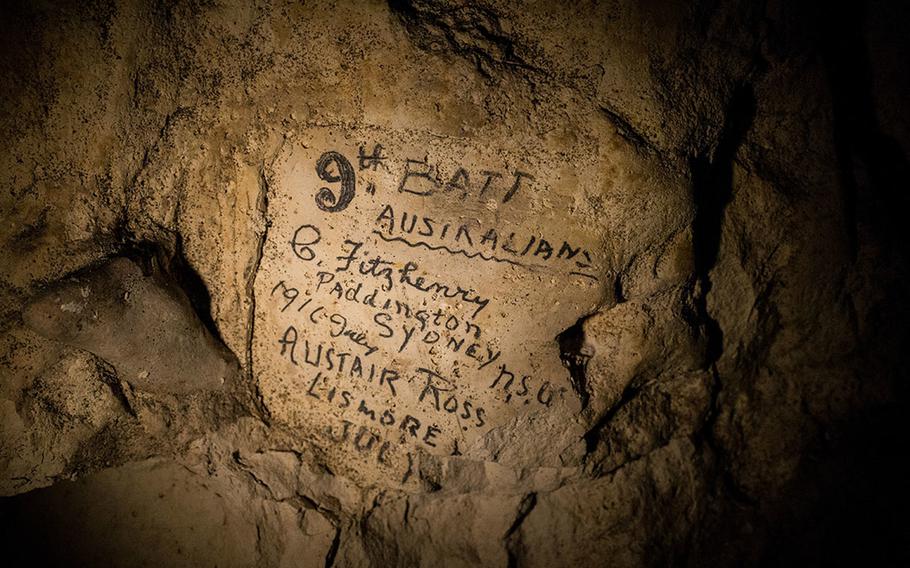 9th BATT
AUSTRALIANS
C. Fitzhenry
PAddington
SYDNEY N.S.W
1916 July
ALISTAIR ROSS
LISMORE
JULY